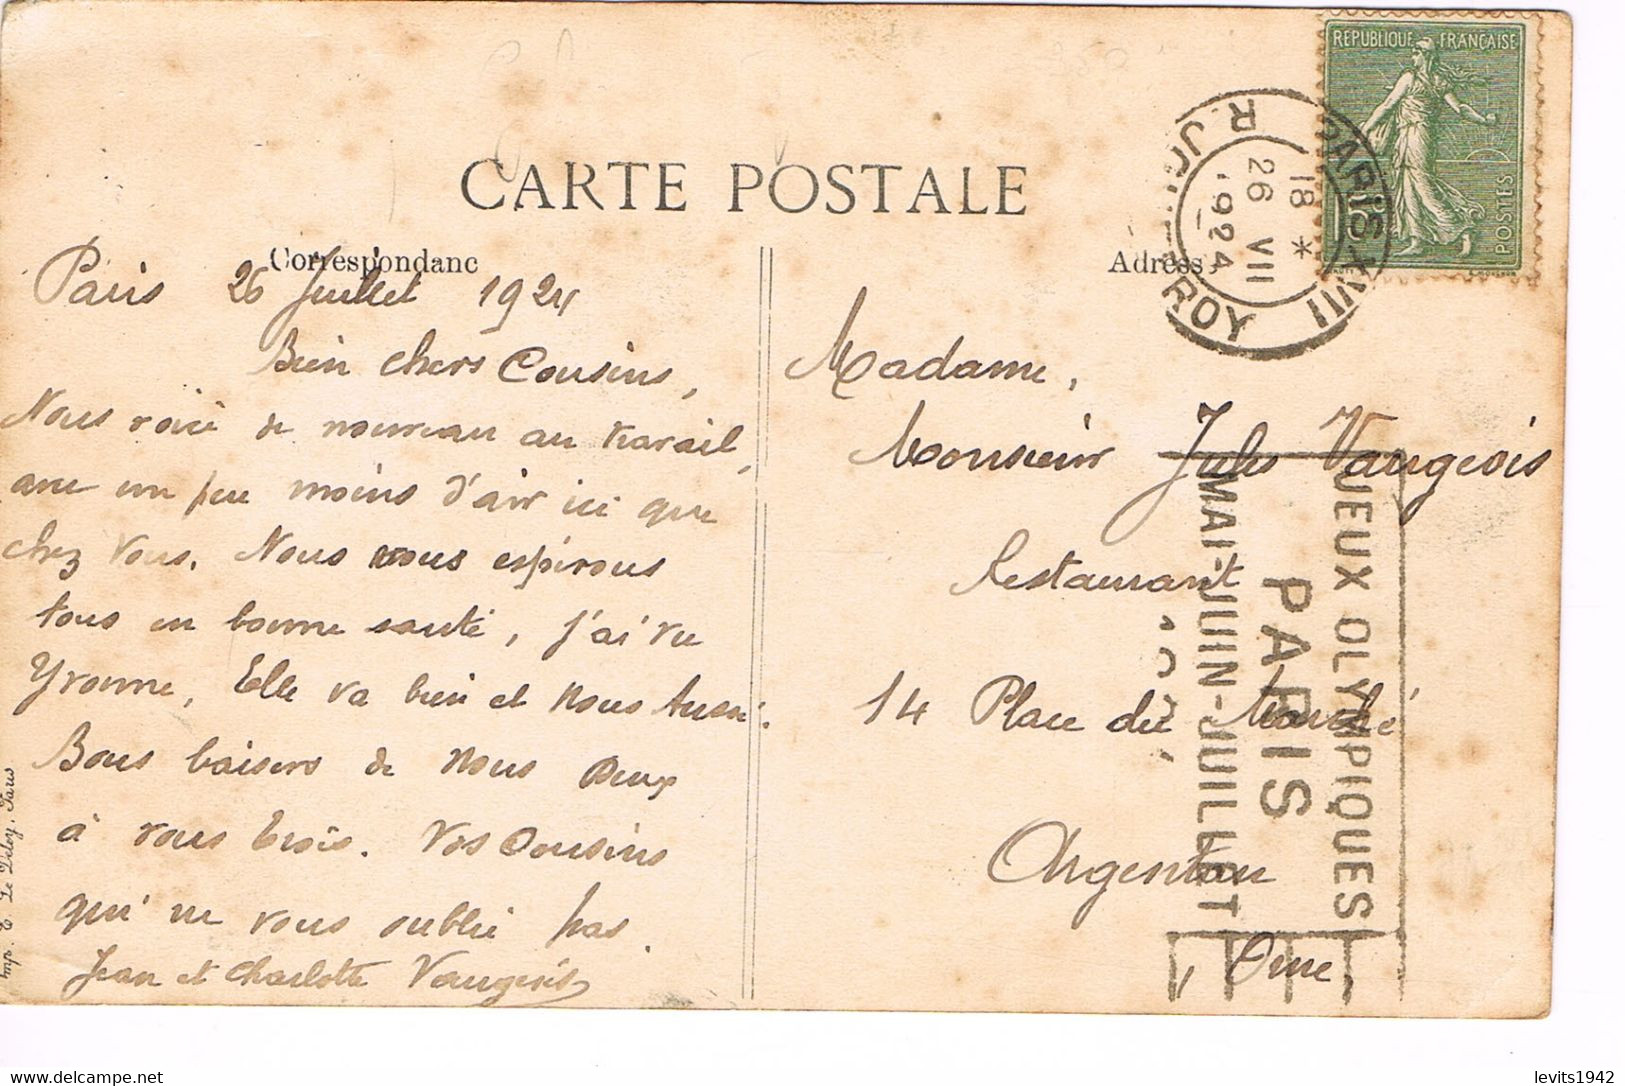 CARTE POSTALE
Correspondanc
Adress
RÉPUBLIQUE FRANÇAISE
15c
POSTES
PARIS XVIII
18 *
26 VII
1924
R
ROY
Paris 26 Juillet 1924
Bien chers Cousins,
Nous voici de nouveau au travail,
avec un peu moins d'air ici que
chez vous. Nous vous espérons
tous en bonne santé, J'ai vu
Yvonne, Elle va bien et nous Aussi.
Bons baisers de nous Deux
à vous trois. Vos Cousins
qui ne vous oublie pas.
Jean et Charlotte Vaugeois
Madame,
Monsieur Jules Vaugeois
Restaurant
14 Place du Marché
Argentan
Orne.
JEUX OLYMPIQUES
PARIS
MAI-JUIN-JUILLET
Imp. E. Le Deley, Paris
levits1942